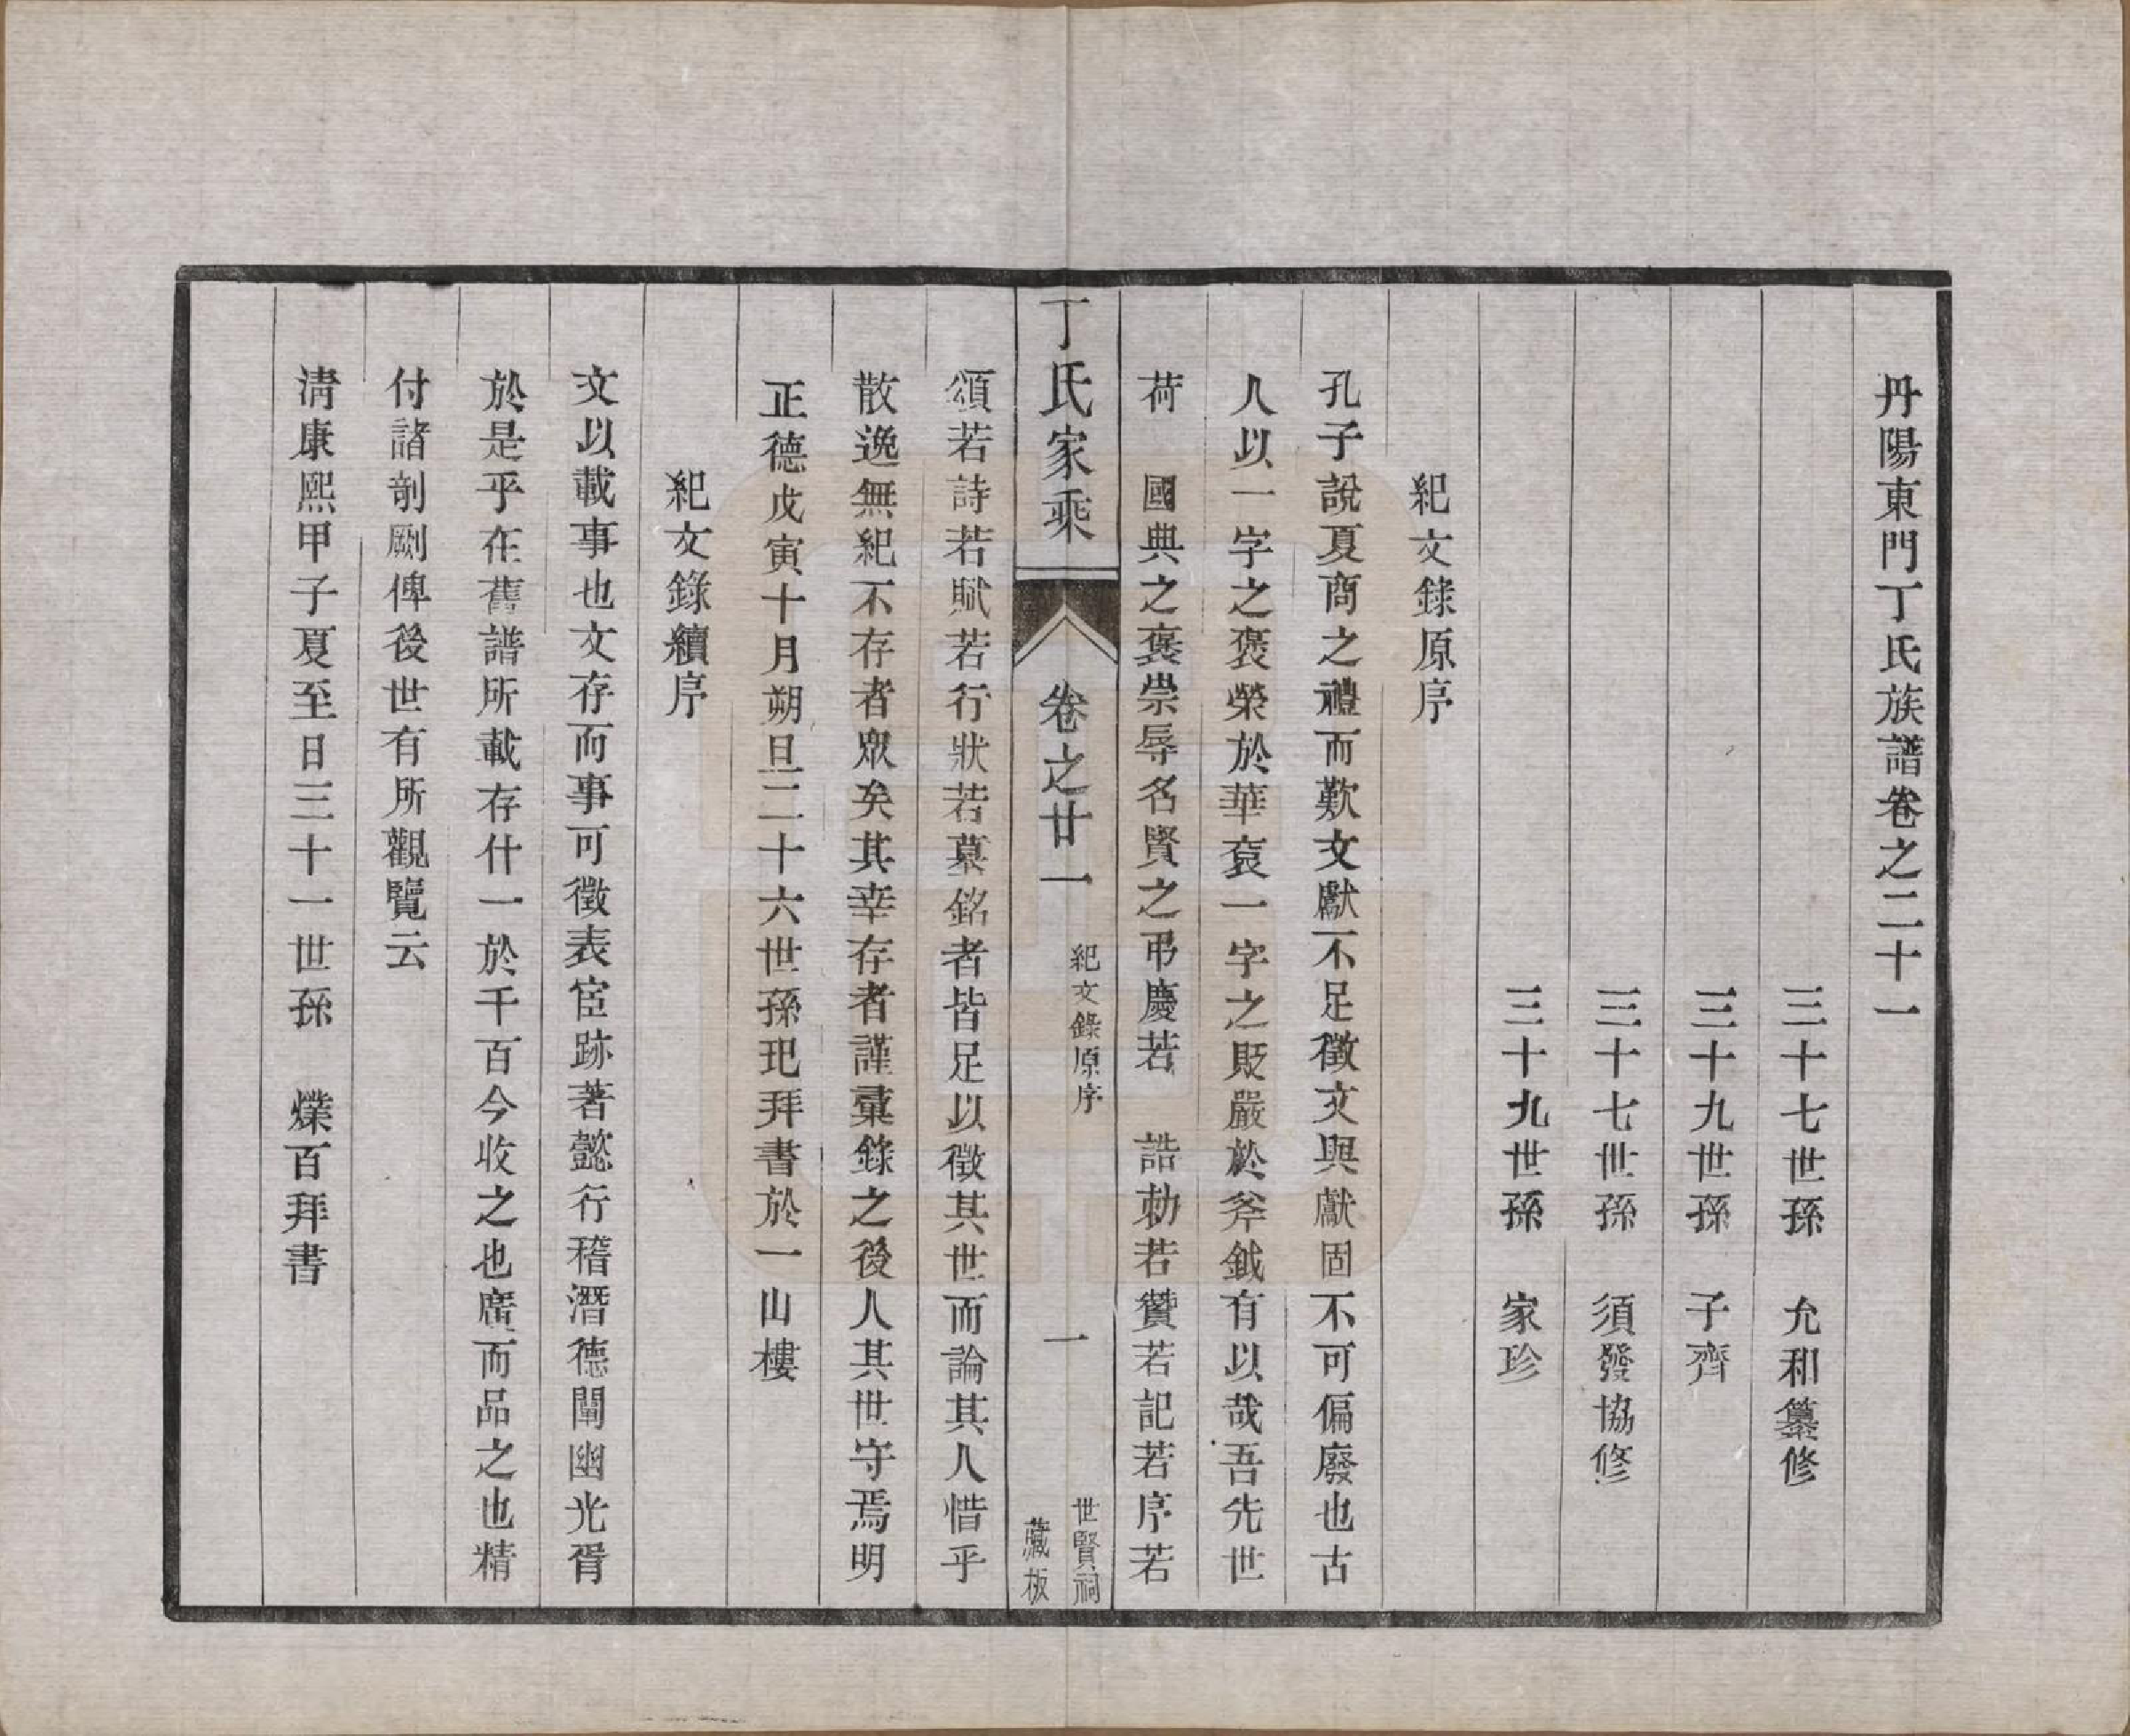 丹陽東門丁氏族譜卷之二十一
三十七世孫　允和纂修
三十九世孫　子齊
三十七世孫　須發協修
三十九世孫　家珍
紀文錄原序
孔子說夏商之禮而歎文獻不足徵文與獻固不可偏廢也古
人以一字之褒榮於華袞一字之貶嚴於斧鉞有以哉吾先世
荷　國典之褒崇辱名賢之弔慶若　誥勅若贊若記若序若
丁氏家乘
卷之廿一
紀文錄原序
一
世賢祠
藏板
頌若詩若賦若行狀若墓銘者皆足以徵其世而論其人惜乎
散逸無紀不存者眾矣其幸存者謹彙錄之後人其世守焉明
正德戊寅十月朔旦二十六世孫玘拜書於一山樓
紀文錄續序
文以載事也文存而事可徵表宦跡著懿行稽潛德闡幽光胥
於是乎在舊譜所載存什一於千百今收之也廣而品之也精
付諸剞劂俾後世有所觀覽云
淸康熙甲子夏至日三十一世孫　爗百拜書